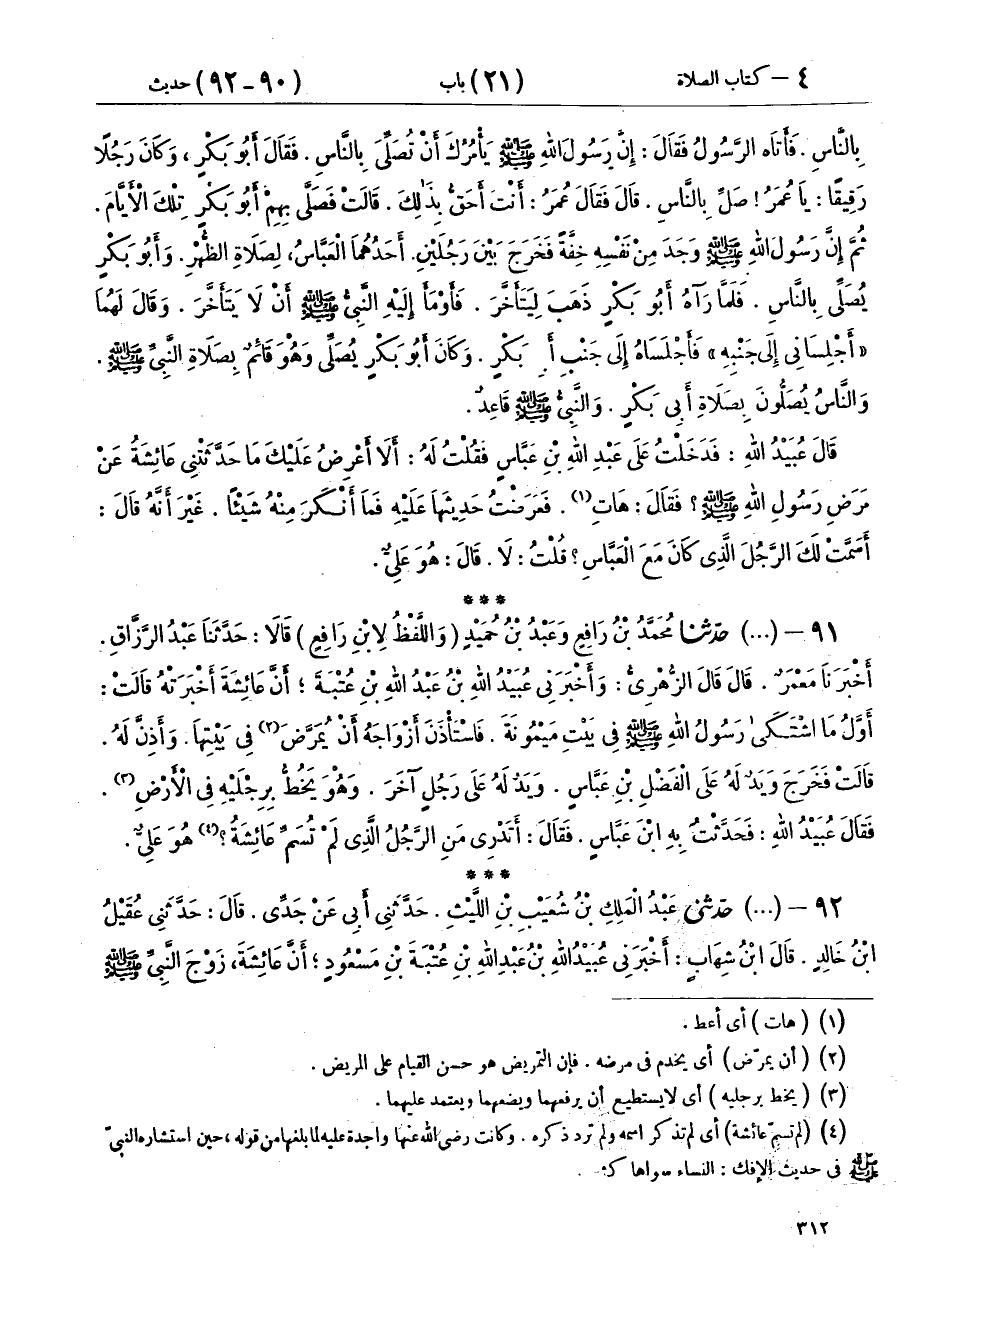 ٤ – كتاب الصلاة (٢١) باب (٩٠-٩٢) حديث
بِالنَّاسِ . فَأَتَاهُ الرَّسُولُ فَقَالَ : إِنَّ رَسُولَ اللهِ ﷺ يَأْمُرُكَ أَنْ تُصَلِّيَ بِالنَّاسِ . فَقَالَ أَبُو بَكْرٍ ، وَكَانَ رَجُلًا
رَقِيقًا : يَا عُمَرُ ! صَلِّ بِالنَّاسِ . قَالَ فَقَالَ عُمَرُ : أَنْتَ أَحَقُّ بِذَٰلِكَ . قَالَتْ فَصَلَّى بِهِمْ أَبُو بَكْرٍ تِلْكَ الْأَيَّامَ .
ثُمَّ إِنَّ رَسُولَ اللهِ ﷺ وَجَدَ مِنْ نَفْسِهِ خِفَّةً فَخَرَجَ بَيْنَ رَجُلَيْنِ. أَحَدُهُمَا الْعَبَّاسُ، لِصَلَاةِ الظُّهْرِ. وَأَبُو بَكْرٍ
يُصَلِّي بِالنَّاسِ . فَلَمَّا رَآهُ أَبُو بَكْرٍ ذَهَبَ لِيَتَأَخَّرَ . فَأَوْمَأَ إِلَيْهِ النَّبِيُّ ﷺ أَنْ لَا يَتَأَخَّرَ . وَقَالَ لَهُمَا
« أَجْلِسَانِي إِلَى جَنْبِهِ » فَأَجْلَسَاهُ إِلَى جَنْبِ أَبِي بَكْرٍ . وَكَانَ أَبُو بَكْرٍ يُصَلِّي وَهُوَ قَائِمٌ بِصَلَاةِ النَّبِيِّ ﷺ .
وَالنَّاسُ يُصَلُّونَ بِصَلَاةِ أَبِي بَكْرٍ . وَالنَّبِيُّ ﷺ قَاعِدٌ .
قَالَ عُبَيْدُ اللهِ : فَدَخَلْتُ عَلَى عَبْدِ اللهِ بْنِ عَبَّاسٍ فَقُلْتُ لَهُ : أَلَا أَعْرِضُ عَلَيْكَ مَا حَدَّثَتْنِي عَائِشَةُ عَنْ
مَرَضِ رَسُولِ اللهِ ﷺ ؟ فَقَالَ : هَاتِ (١) . فَعَرَضْتُ حَدِيثَهَا عَلَيْهِ فَمَا أَنْكَرَ مِنْهُ شَيْئًا . غَيْرَ أَنَّهُ قَالَ :
أَسَمَّتْ لَكَ الرَّجُلَ الَّذِي كَانَ مَعَ الْعَبَّاسِ ؟ قُلْتُ : لَا . قَالَ : هُوَ عَلِيٌّ .
***
٩١ – (...) حدثنا مُحَمَّدُ بْنُ رَافِعٍ وَعَبْدُ بْنُ حُمَيْدٍ ( وَاللَّفْظُ لِابْنِ رَافِعٍ ) قَالَا : حَدَّثَنَا عَبْدُ الرَّزَّاقِ .
أَخْبَرَنَا مَعْمَرٌ . قَالَ قَالَ الزُّهْرِيُّ : وَأَخْبَرَنِي عُبَيْدُ اللهِ بْنُ عَبْدِ اللهِ بْنِ عُتْبَةَ ؛ أَنَّ عَائِشَةَ أَخْبَرَتْهُ قَالَتْ :
أَوَّلُ مَا اشْتَكَىٰ رَسُولُ اللهِ ﷺ فِي بَيْتِ مَيْمُونَةَ . فَاسْتَأْذَنَ أَزْوَاجَهُ أَنْ يُمَرَّضَ (٢) فِي بَيْتِهَا . وَأَذِنَّ لَهُ .
قَالَتْ فَخَرَجَ وَيَدٌ لَهُ عَلَى الْفَضْلِ بْنِ عَبَّاسٍ . وَيَدٌ لَهُ عَلَى رَجُلٍ آخَرَ . وَهُوَ يَخُطُّ بِرِجْلَيْهِ فِي الْأَرْضِ (٣) .
فَقَالَ عُبَيْدُ اللهِ : فَحَدَّثْتُ بِهِ ابْنَ عَبَّاسٍ . فَقَالَ : أَتَدْرِي مَنِ الرَّجُلُ الَّذِي لَمْ تُسَمِّ عَائِشَةُ ؟ (٤) هُوَ عَلِيٌّ .
***
٩٢ – (...) حدثني عَبْدُ الْمَلِكِ بْنُ شُعَيْبِ بْنِ اللَّيْثِ . حَدَّثَنِي أَبِي عَنْ جَدِّي . قَالَ : حَدَّثَنِي عُقَيْلُ
ابْنُ خَالِدٍ . قَالَ ابْنُ شِهَابٍ : أَخْبَرَنِي عُبَيْدُ اللهِ بْنُ عَبْدِ اللهِ بْنِ عُتْبَةَ بْنِ مَسْعُودٍ ؛ أَنَّ عَائِشَةَ، زَوْجَ النَّبِيِّ ﷺ
(١) ( هات ) أى أعط .
(٢) ( أن يمرّض ) أى يخدم فى مرضه . فإن التمريض هو حسن القيام على المريض .
(٣) ( يخط برجليه ) أى لا يستطيع أن يرفعهما ويضعهما ويعتمد عليهما .
(٤) (لم تسمّ عائشة) أى لم تذكر اسمه ولم ترد ذكره . وكانت رضى الله عنها واجدة عليه لما بلغها من قوله ، حين استشاره النبيّ
ﷺ فى حديث الإفك : النساء سواها كثير .
٣١٢